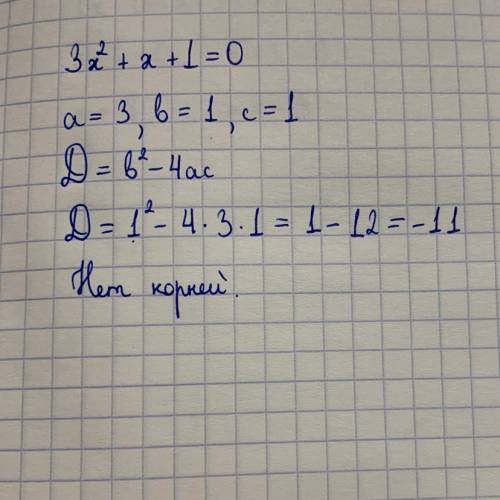 3x² + x + 1 = 0
a = 3, b = 1, c = 1
D = b² - 4ac
D = 1² - 4 · 3 · 1 = 1 - 12 = -11
Нет корней.